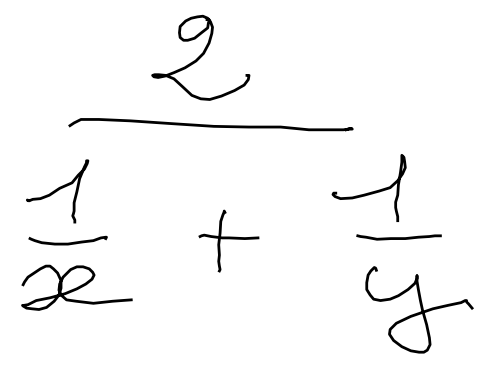 \frac{2}{\frac{1}{x} + \frac{1}{y}}